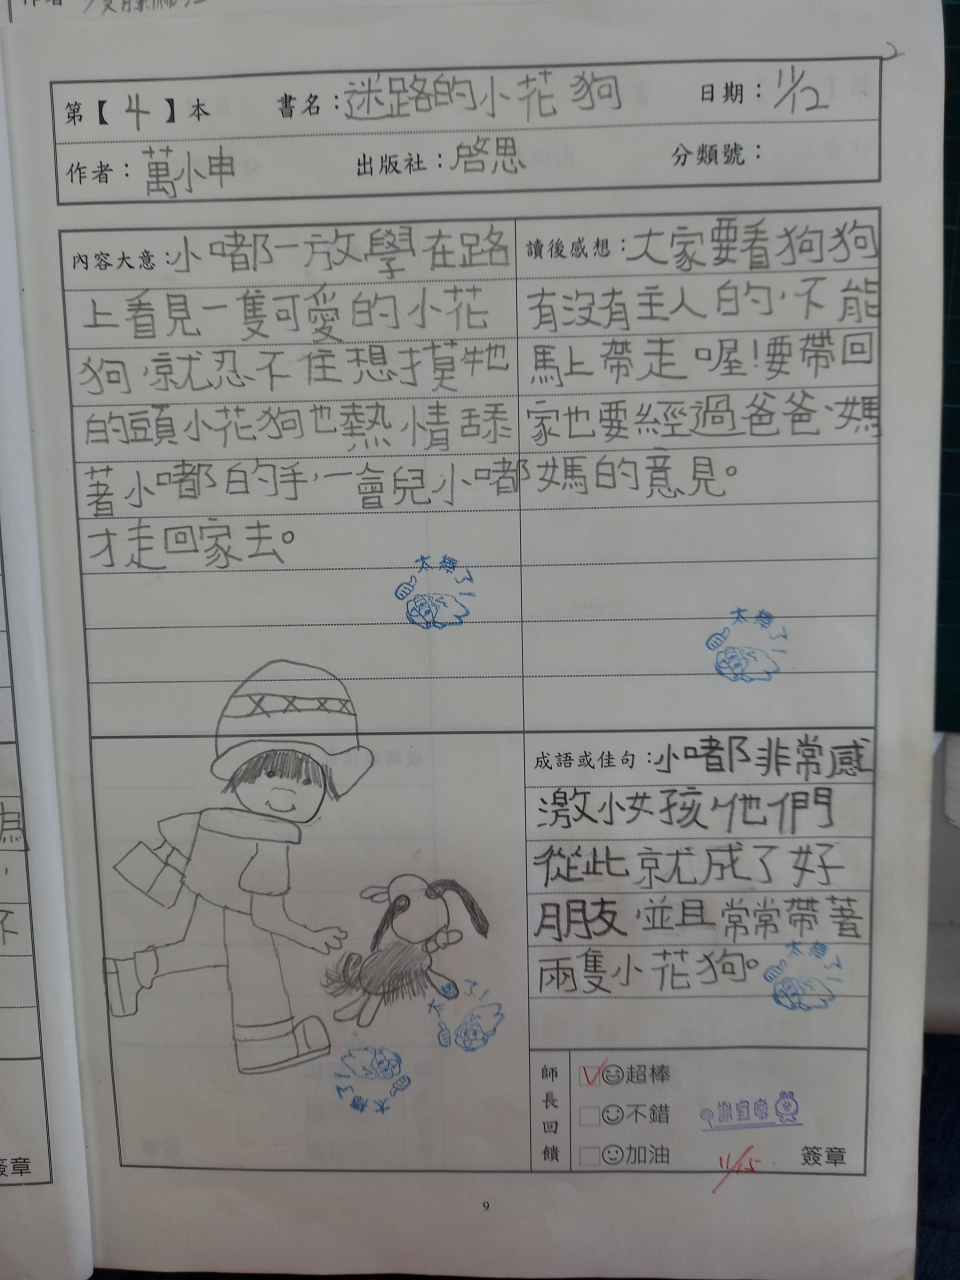 第【4】本 書名：迷路的小花狗 日期：11/12
作者：萬小申 出版社：啓思 分類號：
內容大意：小嘟一放學在路
上看見一隻可愛的小花
狗，就忍不住想摸牠
的頭小花狗也熱情舔
著小嘟的手，一會兒小嘟
才走回家去。
讀後感想：大家要看狗狗
有沒有主人的，不能
馬上帶走喔！要帶回
家也要經過爸爸、媽
媽的意見。
太棒了！
太棒了！
成語或佳句：小嘟非常感
激小女孩，他們
從此就成了好
朋友，並且常常帶著
兩隻小花狗。
太棒了！
太棒了！
太棒了！
師長回饋
超棒
不錯
加油
11/15
簽章
9
簽章